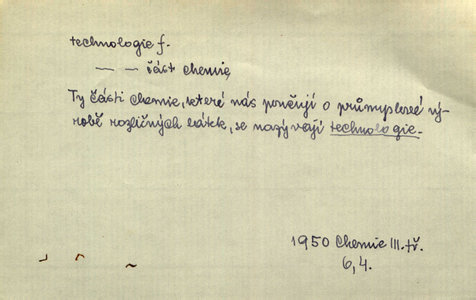 technologie f.
— — část chemie
Ty části chemie, které nás poučují o průmyslové vý-
robě rozličných látek, se nazývají technologie.
1950 Chemie III. tř.
6,4.